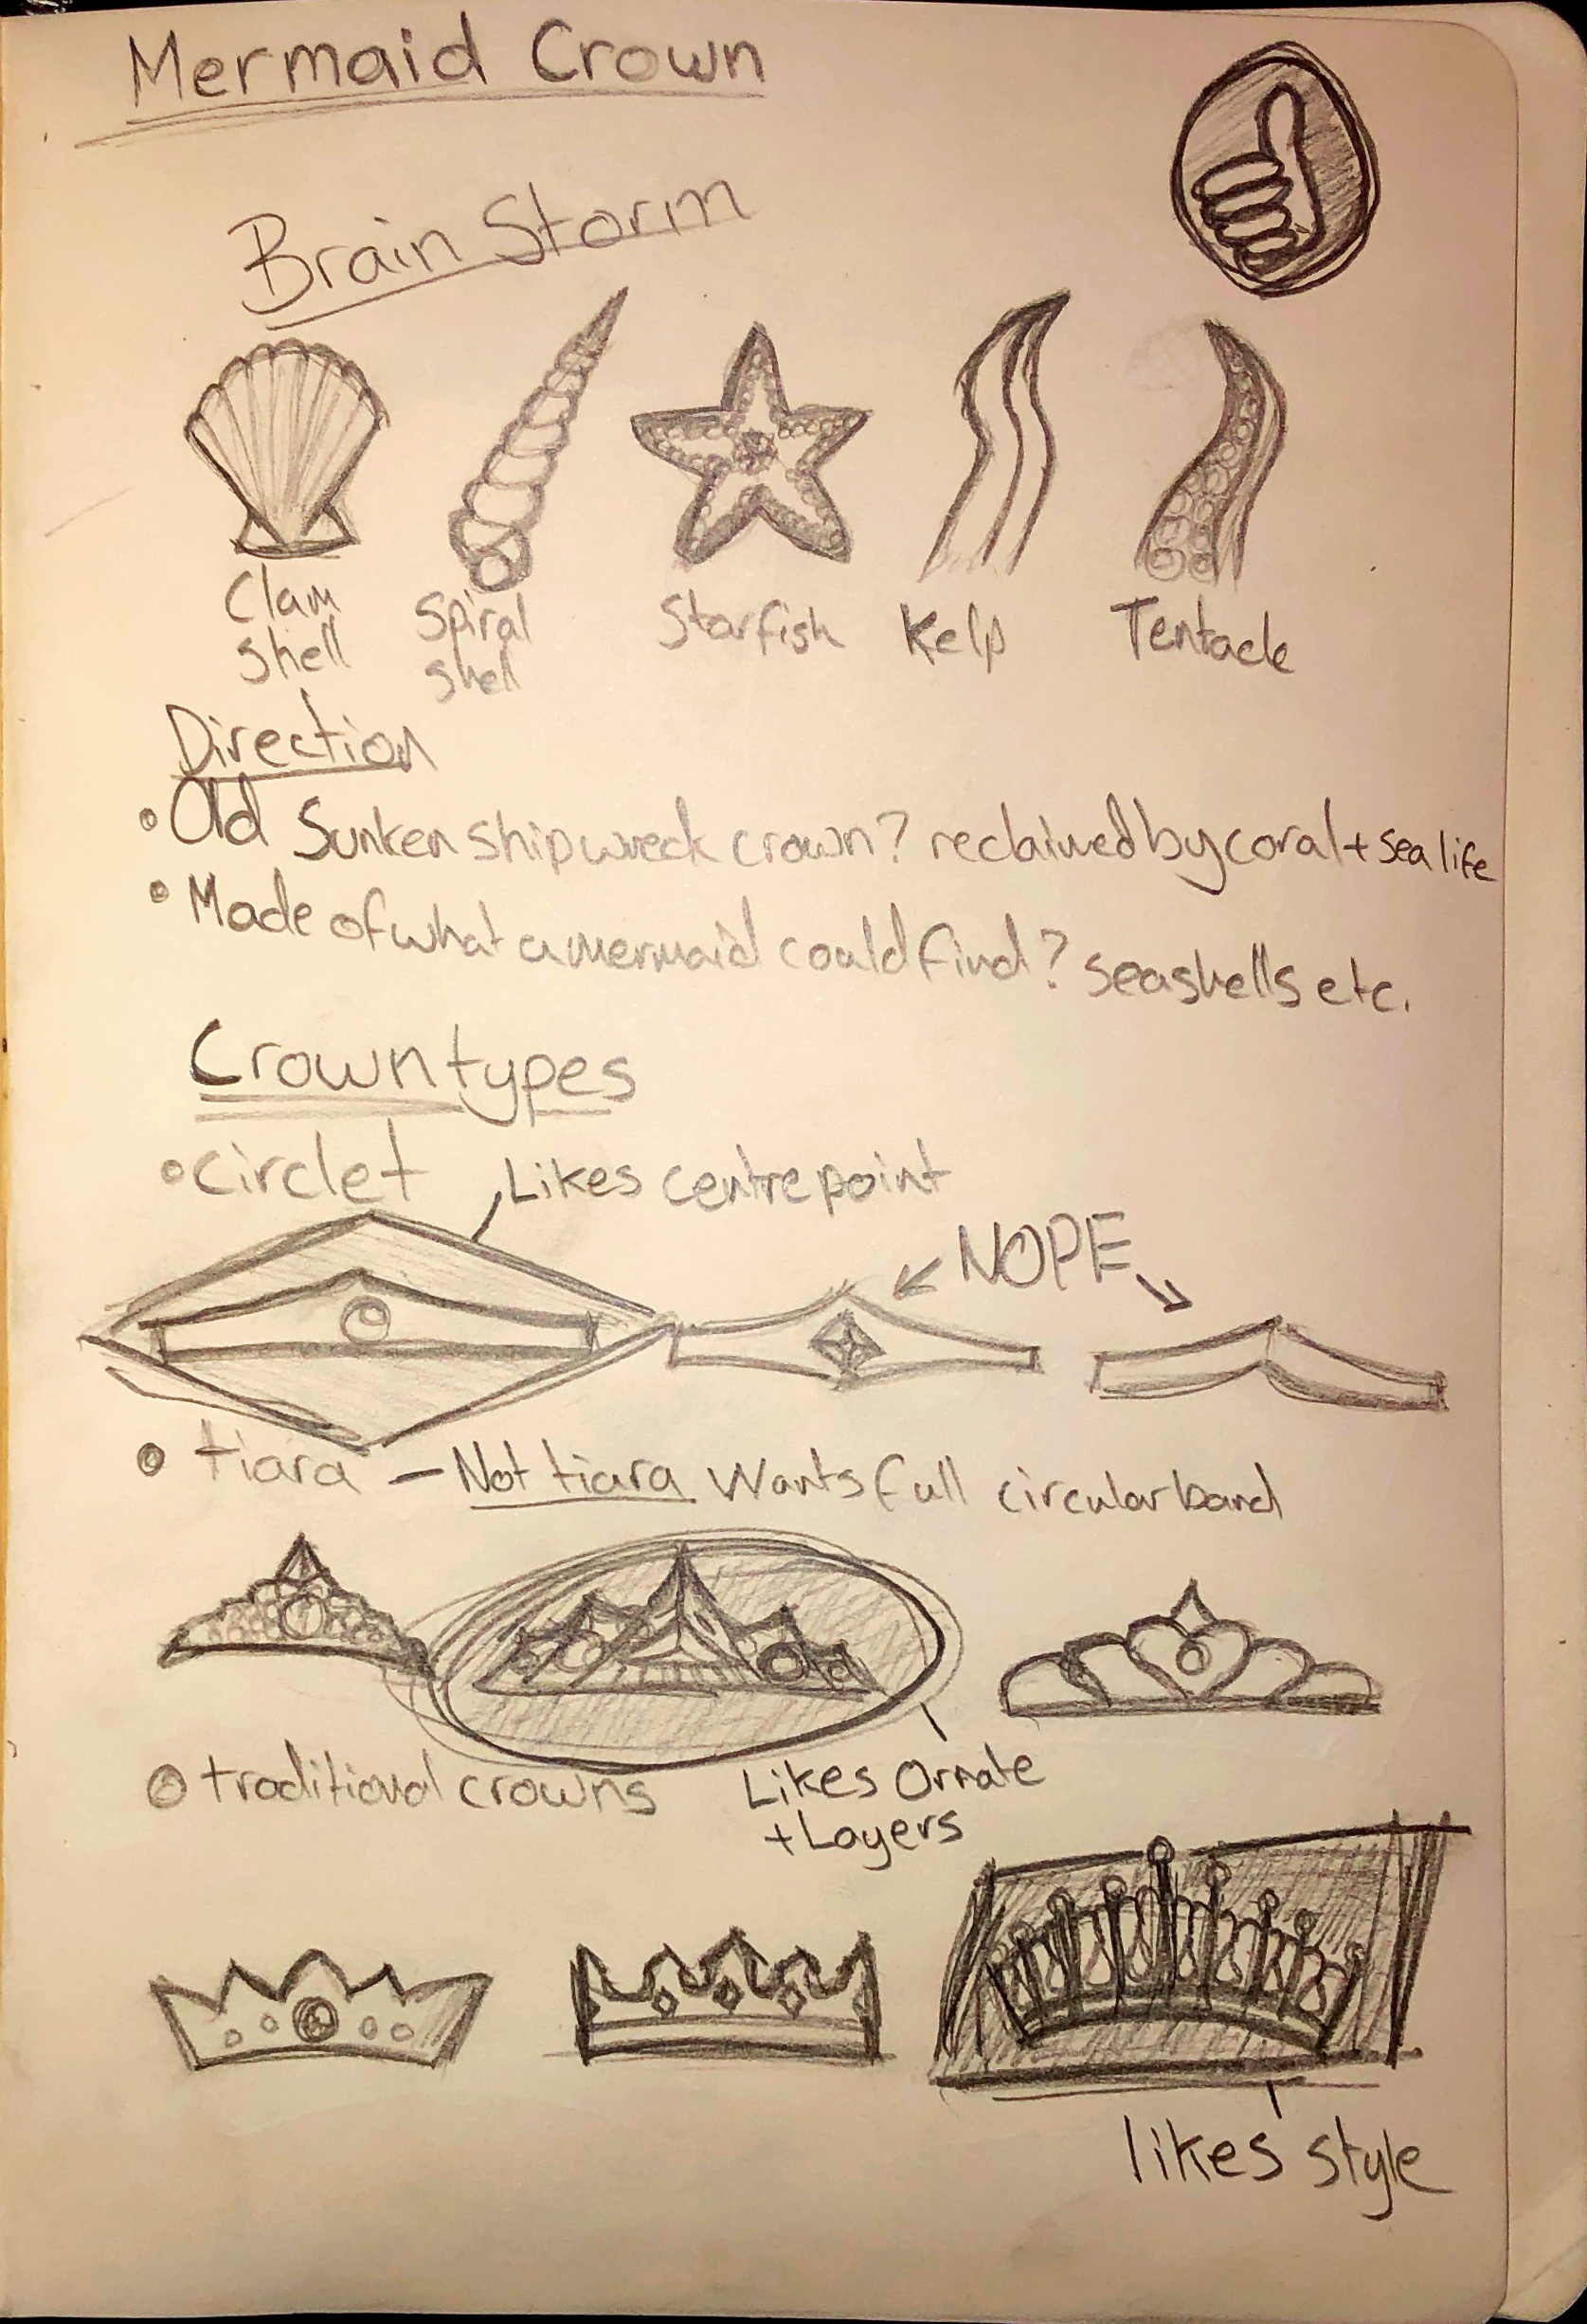 Mermaid Crown
Brain Storm
Clam
shell
Spiral
shell
Starfish
Kelp
Tentacle
Direction
• Old Sunken shipwreck crown? reclaimed by coral + sea life
• Made of what a mermaid could find? seashells etc.
Crown types
• circlet
Likes centre point
NOPE
• tiara — Not tiara Wants full circular band
• traditional crowns
Likes Ornate
+ Layers
likes style